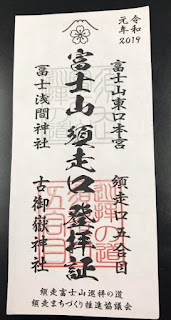 令和
元年
2019
富士山東口本宮 須走口五合目
富士山須走口登拝証
冨士浅間神社 古御嶽神社
巡拝の道
五合目
須走富士山巡拝の道
須走まちづくり推進協議会